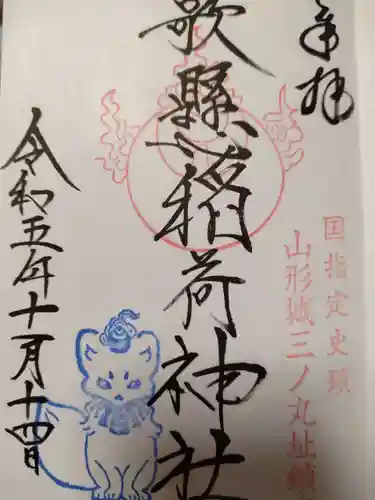 奉拝
国指定史蹟
山形城三ノ丸址鎮
歌懸稲荷神社
令和五年十一月十四日